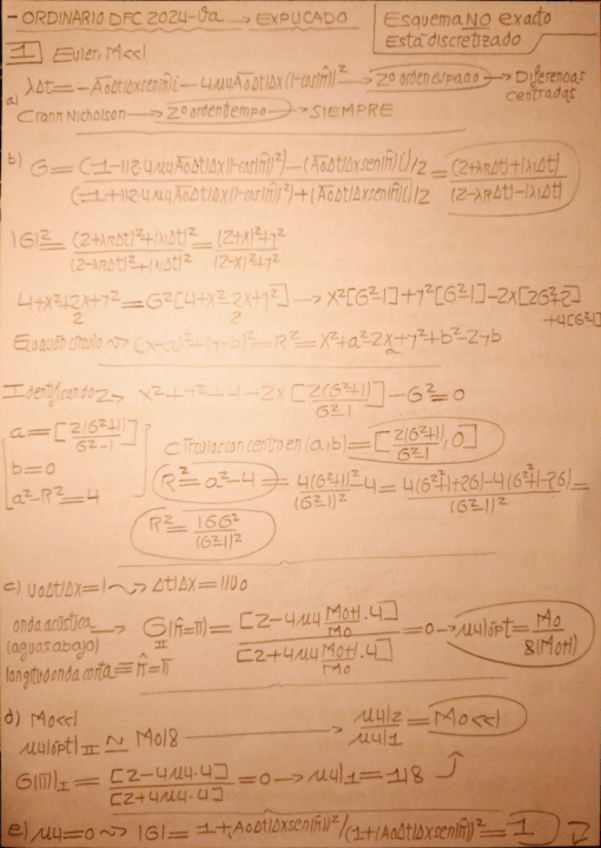 - ORDINARIO DFC 2024-Va → EXPLICADO
Esquema NO exacto
Está discretizado
1 Euler, M<<1
a) λΔt = -A̅0Δt/Δx sen(n̂)i - 4μ4A̅0Δt/Δx(1-cos(n̂))² → 2º orden espacio → Diferencias centradas
Crann Nicholson → 2º orden tiempo → SIEMPRE
b) G = (-1-1/2·4μ4 A̅0Δt/Δx(1-cos(n̂))²)-(A̅0Δt/Δx sen(n̂)i)/2 / (-1+1/2·4μ4 A̅0Δt/Δx(1-cos(n̂))²)+(A̅0Δt/Δx sen(n̂)i)/2 = (2+λRΔt)+λIΔt) / (2-λRΔt)-λIΔt)
|G|² = (2+λRΔt)²+(λIΔt)² / (2-λRΔt)²+(λIΔt)² = (2+x)²+y² / (2-x)²+y²
4+x²+2x+y² = G²[4+x²-2x+y²] → x²[G²-1]+y²[G²-1]-2x[2G²+2]
2 2 +4[G²-1]
Ecuación círculo ⇝ (x-a)²+(y-b)² = R² = x²+a²-2x+y²+b²-2yb
2
Identificando → x²+y²+4-2x[2(G²+1)/G²-1]-G² = 0
a = [2(G²+1)/G²-1]
b = 0
a²-R² = 4
Círculos con centro en (a,b) = [2(G²+1)/G²-1, 0]
R² = a²-4 = 4(G²+1)²/(G²-1)² - 4 = 4(G²+1)+2G)-4(G²+1-2G)/(G²-1)² =
R² = 16G²/(G²-1)²
c) u0Δt/Δx = 1 ⇝ Δt/Δx = 1/U0
onda acústica → G(n̂=π) = [2-4μ4 M0+1/M0 ·4] / [2+4μ4 M0+1/M0 ·4] = 0 → μ4|ópt = M0/8(M0+1)
(aguas abajo) II
longitud onda corta ≡ n̂ = π
d) M0<<1
μ4|ópt|II ≃ M0/8 → μ4|2/μ4|1 = M0<<1
G(π)I = [2-4μ4·4]/[2+4μ4·4] = 0 → μ4|1 = 1/8
e) μ4=0 ⇝ |G| = 1+(A0Δt/Δx sen(n̂))²/(1+(A0Δt/Δx sen(n̂))² = 1